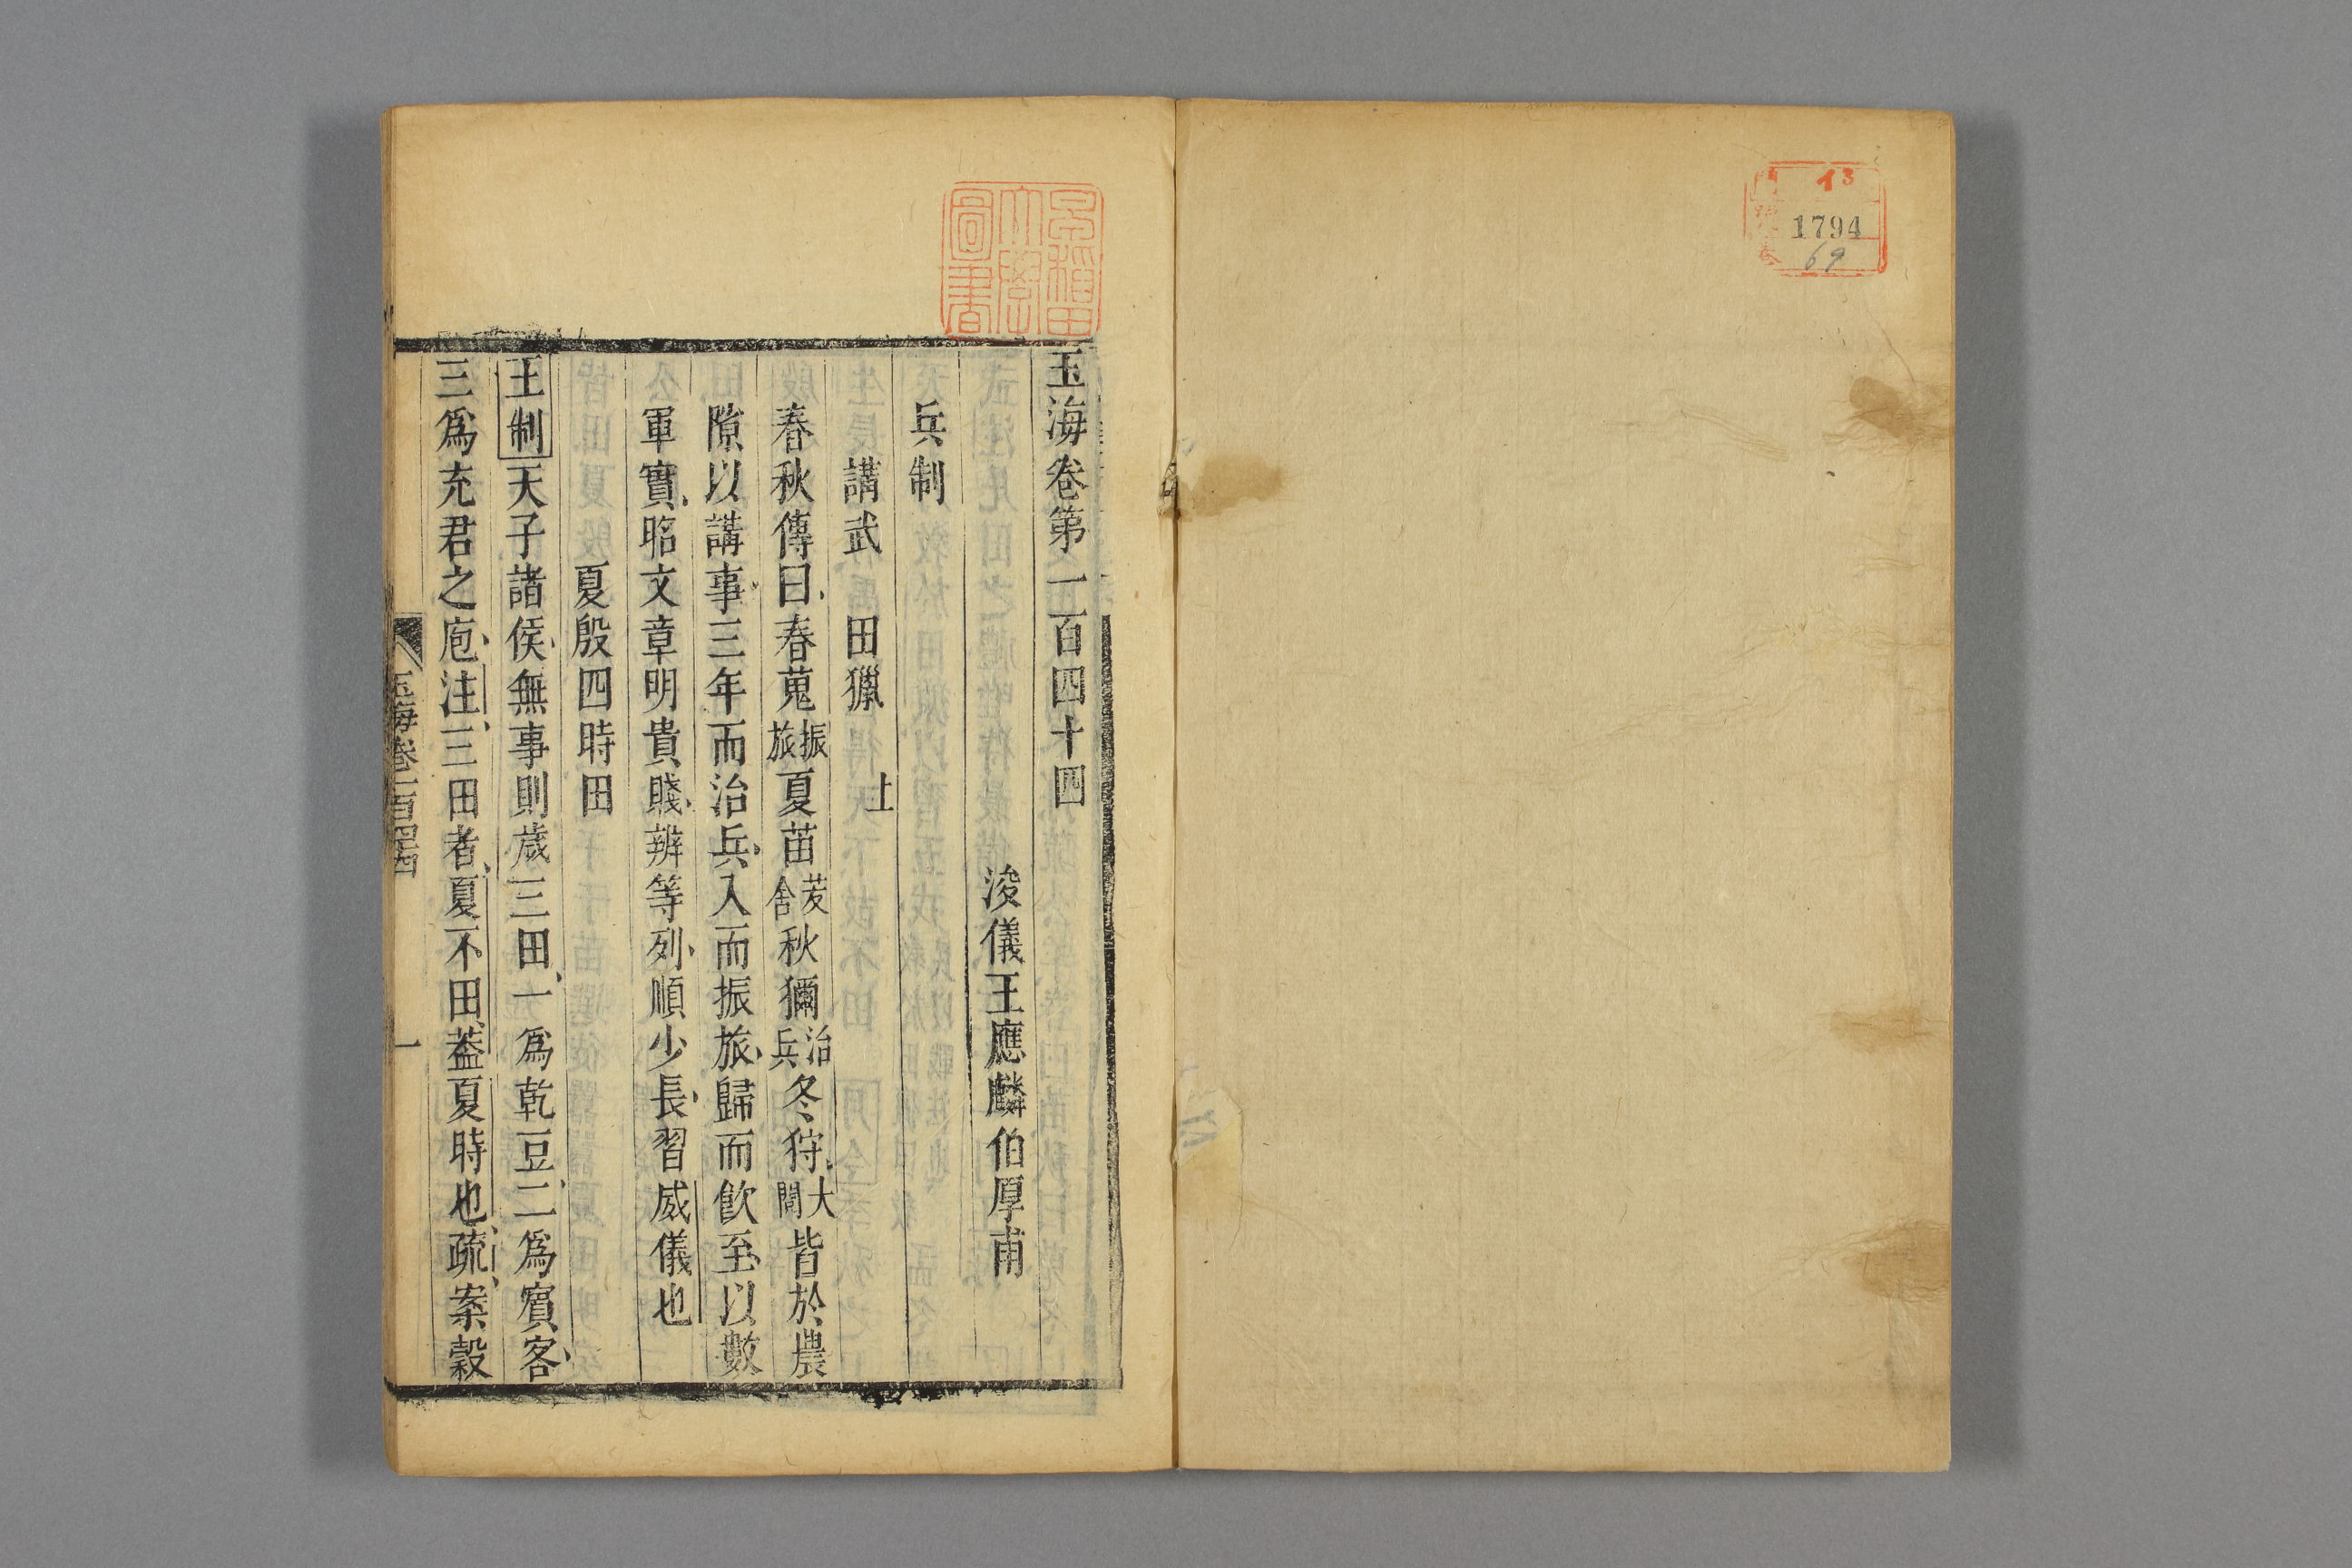 門 13
號 1794
卷 69
早稲田
大學
圖書
玉海卷第一百四十四
浚儀王應麟伯厚甫
兵制
講武 田獵 上
春秋傳曰春蒐振旅夏苗茇舍秋獮治兵冬狩大閱皆於農
隙以講事三年而治兵入而振旅歸而飲至以數
軍實昭文章明貴賤辨等列順少長習威儀也
夏殷四時田
王制天子諸侯無事則歲三田一爲乾豆二爲賓客
三爲充君之庖注三田者夏不田蓋夏時也疏案穀
玉海卷一百四十四
一